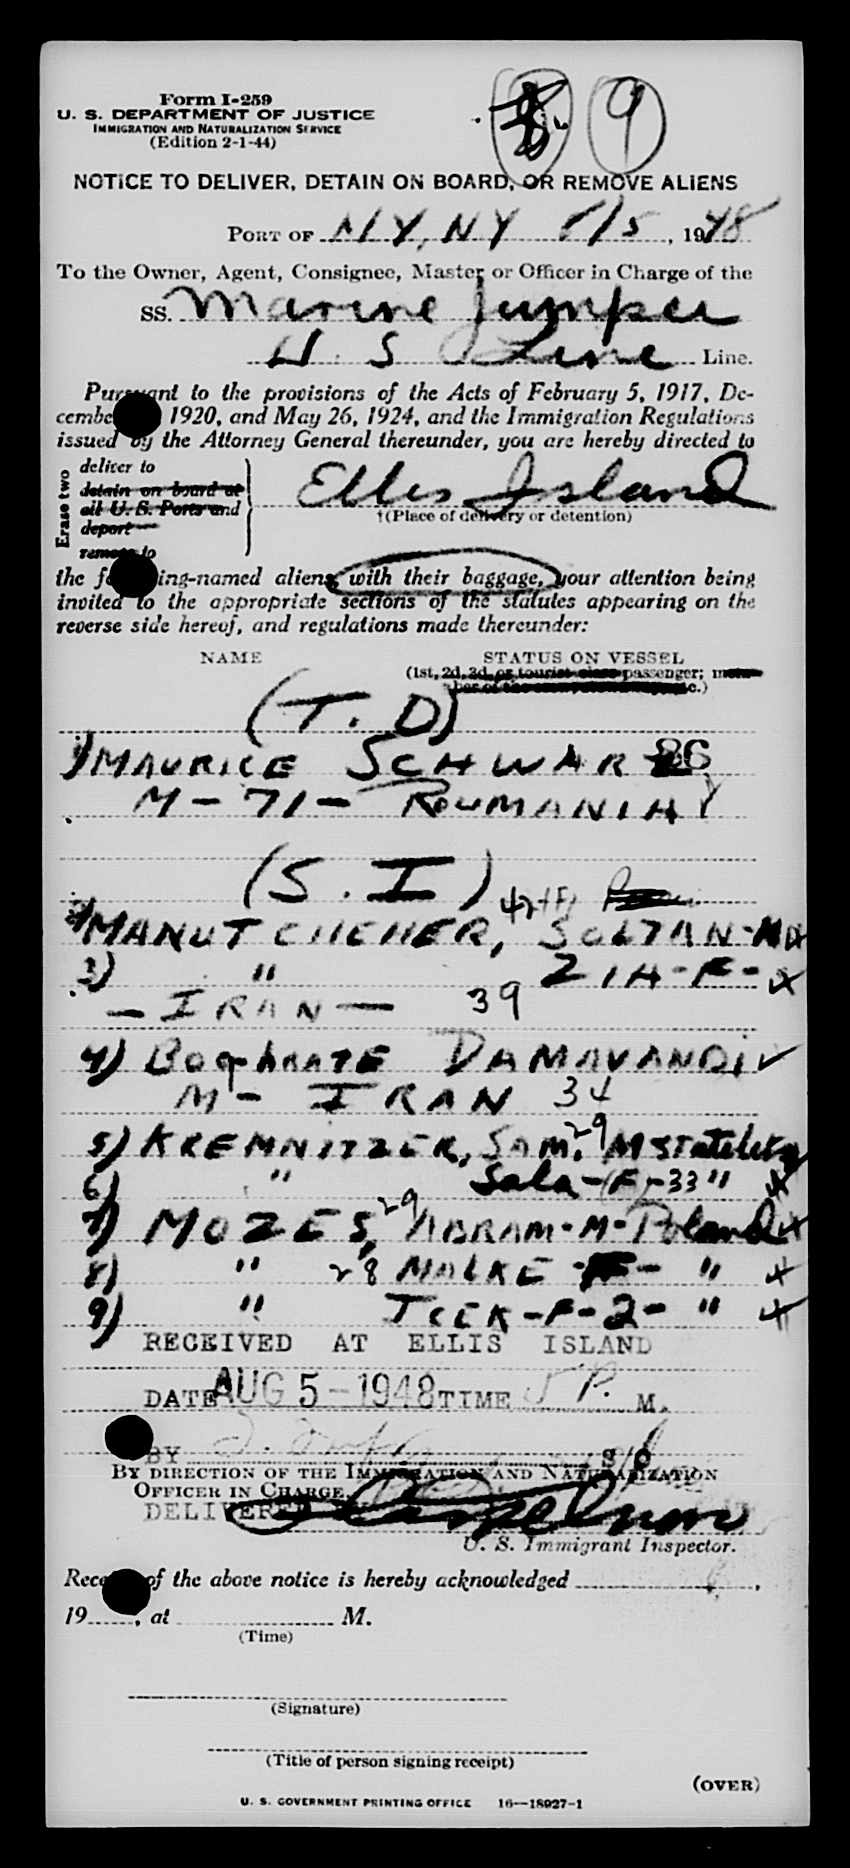 9
Form I-259
U. S. DEPARTMENT OF JUSTICE
IMMIGRATION AND NATURALIZATION SERVICE
(Edition 2-1-44)
NOTICE TO DELIVER, DETAIN ON BOARD, OR REMOVE ALIENS
PORT OF N Y, N Y 8/5, 1948
To the Owner, Agent, Consignee, Master or Officer in Charge of the
SS. Marine Jumper
U. S. Line Line.
Pursuant to the provisions of the Acts of February 5, 1917, De-
cembe 1920, and May 26, 1924, and the Immigration Regulations
issued by the Attorney General thereunder, you are hereby directed to
Erase two
deliver to
detain on board at
all U. S. Ports and
deport
remove to
Ellis Island
†(Place of delivery or detention)
the fo ing-named aliens, with their baggage, your attention being
invited to the appropriate sections of the statutes appearing on the
reverse side hereof, and regulations made thereunder:
NAME STATUS ON VESSEL
(1st, 2d, 3d, or tourist class passenger; mem-
ber of the crew, c.)
(T. D)
1) MAURICE SCHWARTZ 86
M - 71 - ROUMANIA
(S. I)
2) MANUTCHEHER, 42 SOLTAN - M
3) " ZIA - F -
- IRAN - 39
4) BOGHRATE DAMAVANDI
M - IRAN 34
5) KREMNITZER, SAM. 29 M Stateless
6) " Sala - (F) - 33 "
7) MOZES, 29 ABRAM - M - Poland
8) " 28 MALKE - F - "
9) " ICEK - F - 2 - "
RECEIVED AT ELLIS ISLAND
DATE AUG 5 - 1948 TIME 5 P. M.
BY
BY DIRECTION OF THE IMMIGRATION AND NATURALIZATION
OFFICER IN CHARGE.
DELIVERED
U. S. Immigrant Inspector.
Rece of the above notice is hereby acknowledged ,
19 , at M.
(Time)
(Signature)
(Title of person signing receipt)
(OVER)
U. S. GOVERNMENT PRINTING OFFICE 16—18927-1